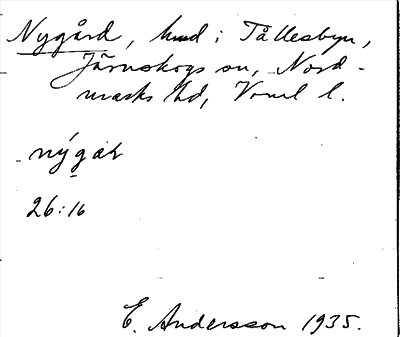 Nygård, hmd i Tållesbyn,
Järnskogs sn, Nord-
marks hd, Vrml l.
nýgaʀ
26:16
E. Andersson 1935.